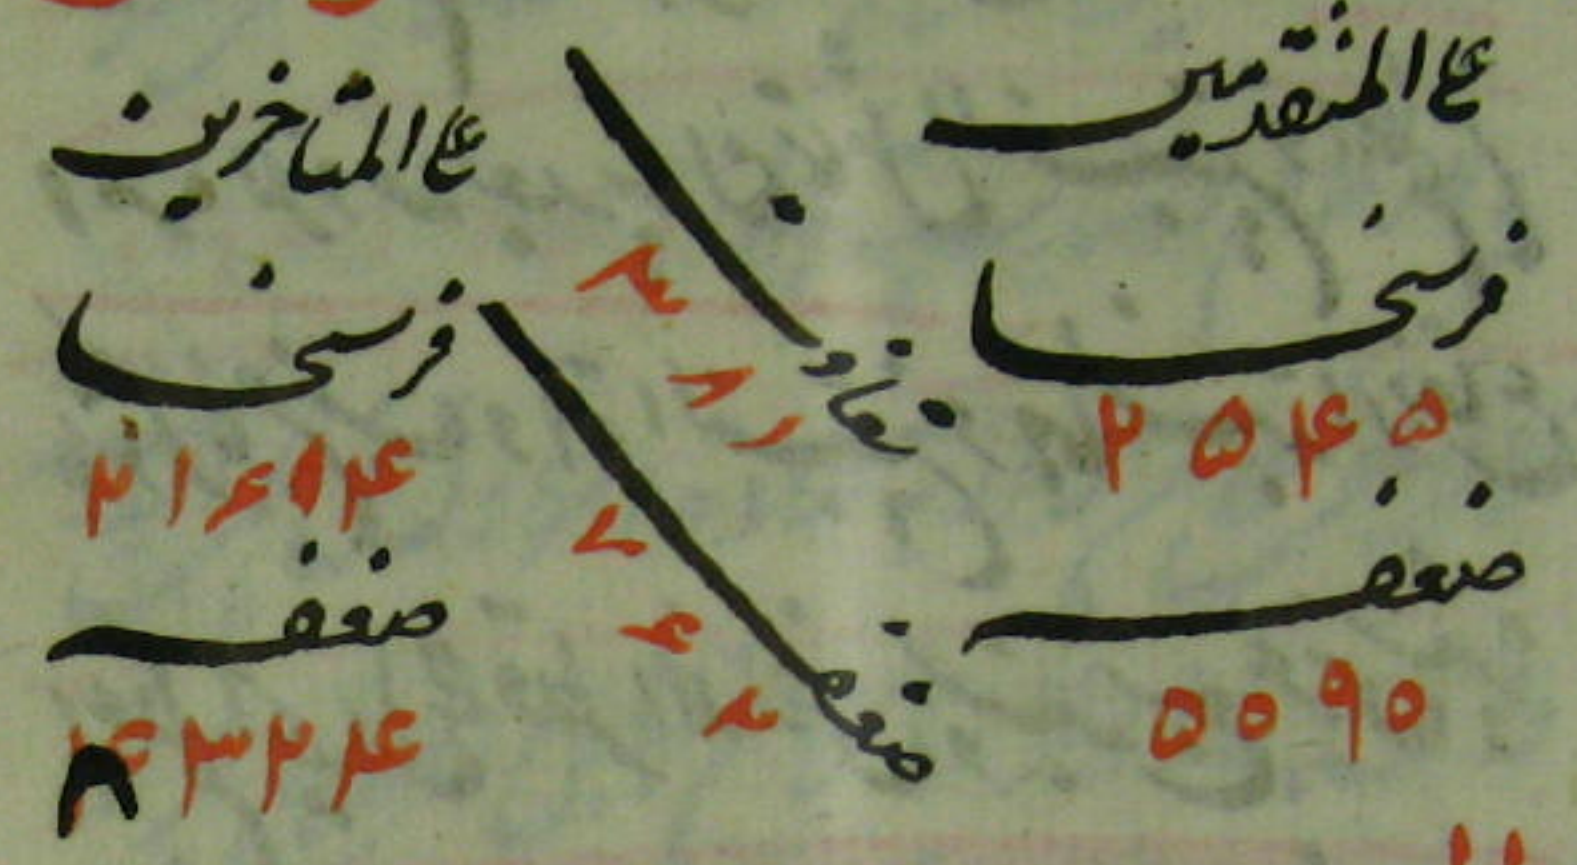 ع المتقدمين
فرسخا
۲۵۴۵
ضعف
۵۰۹۰
تفاوت
۳۸۱
ضعف
۷۶۲
ع المتاخرين
فرسخا
۲۱۶۴
ضعف
۴۳۲۴
۸